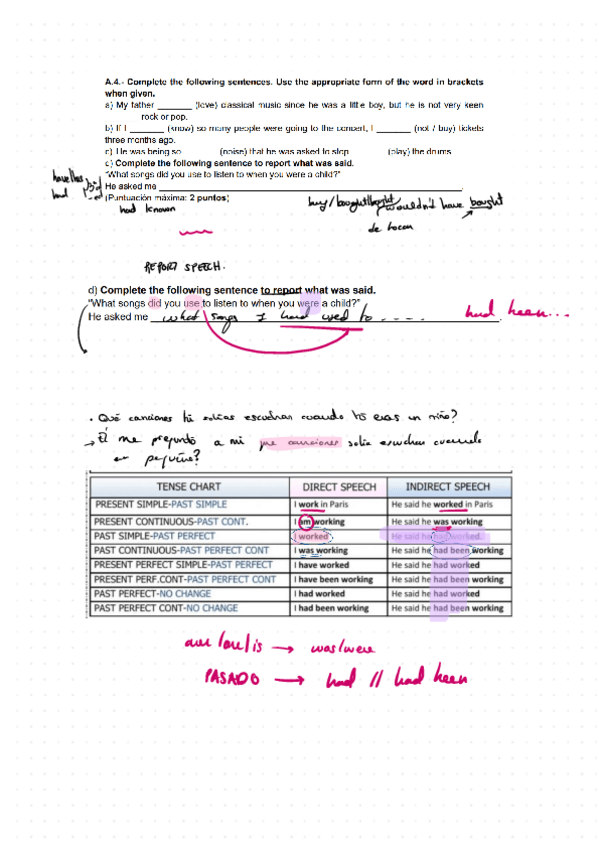 A.4.- Complete the following sentences. Use the appropriate form of the word in brackets
when given.
a) My father _______ (love) classical music since he was a little boy, but he is not very keen
_______ rock or pop.
b) If I _______ (know) so many people were going to the concert, I _______ (not / buy) tickets
three months ago.
c) He was being so _______ (noise) that he was asked to stop _______ (play) the drums.
c) Complete the following sentence to report what was said.
"What songs did you use to listen to when you were a child?"
He asked me _______.
(Puntuación máxima: 2 puntos)
have/has
had
had known
buy/bought/bought
wouldn't have bought
REPORT SPEECH.
d) Complete the following sentence to report what was said.
"What songs did you use to listen to when you were a child?"
He asked me what songs I had used to - - - - .
had been...
. Qué canciones tú solías escuchar cuando tú eras un niño?
→ Él me preguntó a mi que canciones solía escuchar cuando
era pequeño?
TENSE CHART DIRECT SPEECH INDIRECT SPEECH
PRESENT SIMPLE-PAST SIMPLE I work in Paris He said he worked in Paris
PRESENT CONTINUOUS-PAST CONT. I am working He said he was working
PAST SIMPLE-PAST PERFECT I worked He said he had worked
PAST CONTINUOUS-PAST PERFECT CONT I was working He said he had been working
PRESENT PERFECT SIMPLE-PAST PERFECT I have worked He said he had worked
PRESENT PERF.CONT-PAST PERFECT CONT I have been working He said he had been working
PAST PERFECT-NO CHANGE I had worked He said he had worked
PAST PERFECT CONT-NO CHANGE I had been working He said he had been working
am/are/is → was/were
PASADO → had // had been